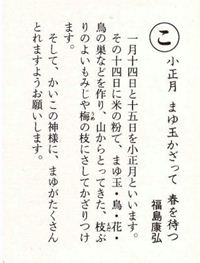 こ
小正月 まゆ玉かざって 春を待つ
福島康弘
一月十四日と十五日を小正月といいます。
その十四日に米の粉で、まゆ玉・鳥・花・
鳥の巣などを作り、山からとってきた、枝ぶ
りのよいもみじや梅の枝にさしてかざりつけ
ます。
そして、かいこの神様に、まゆがたくさん
とれますようお願いします。